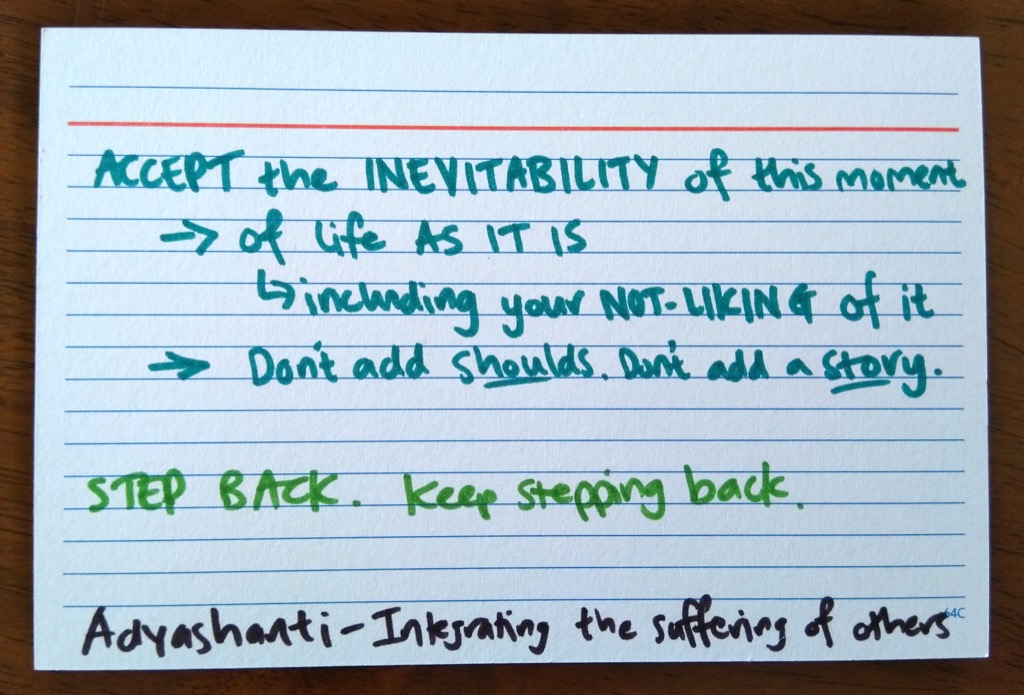 ACCEPT the INEVITABILITY of this moment
→ of life AS IT IS
↳ including your NOT-LIKING of it
→ Don't add shoulds. Don't add a story.
STEP BACK. Keep stepping back.
64C
Adyashanti - Integrating the suffering of others